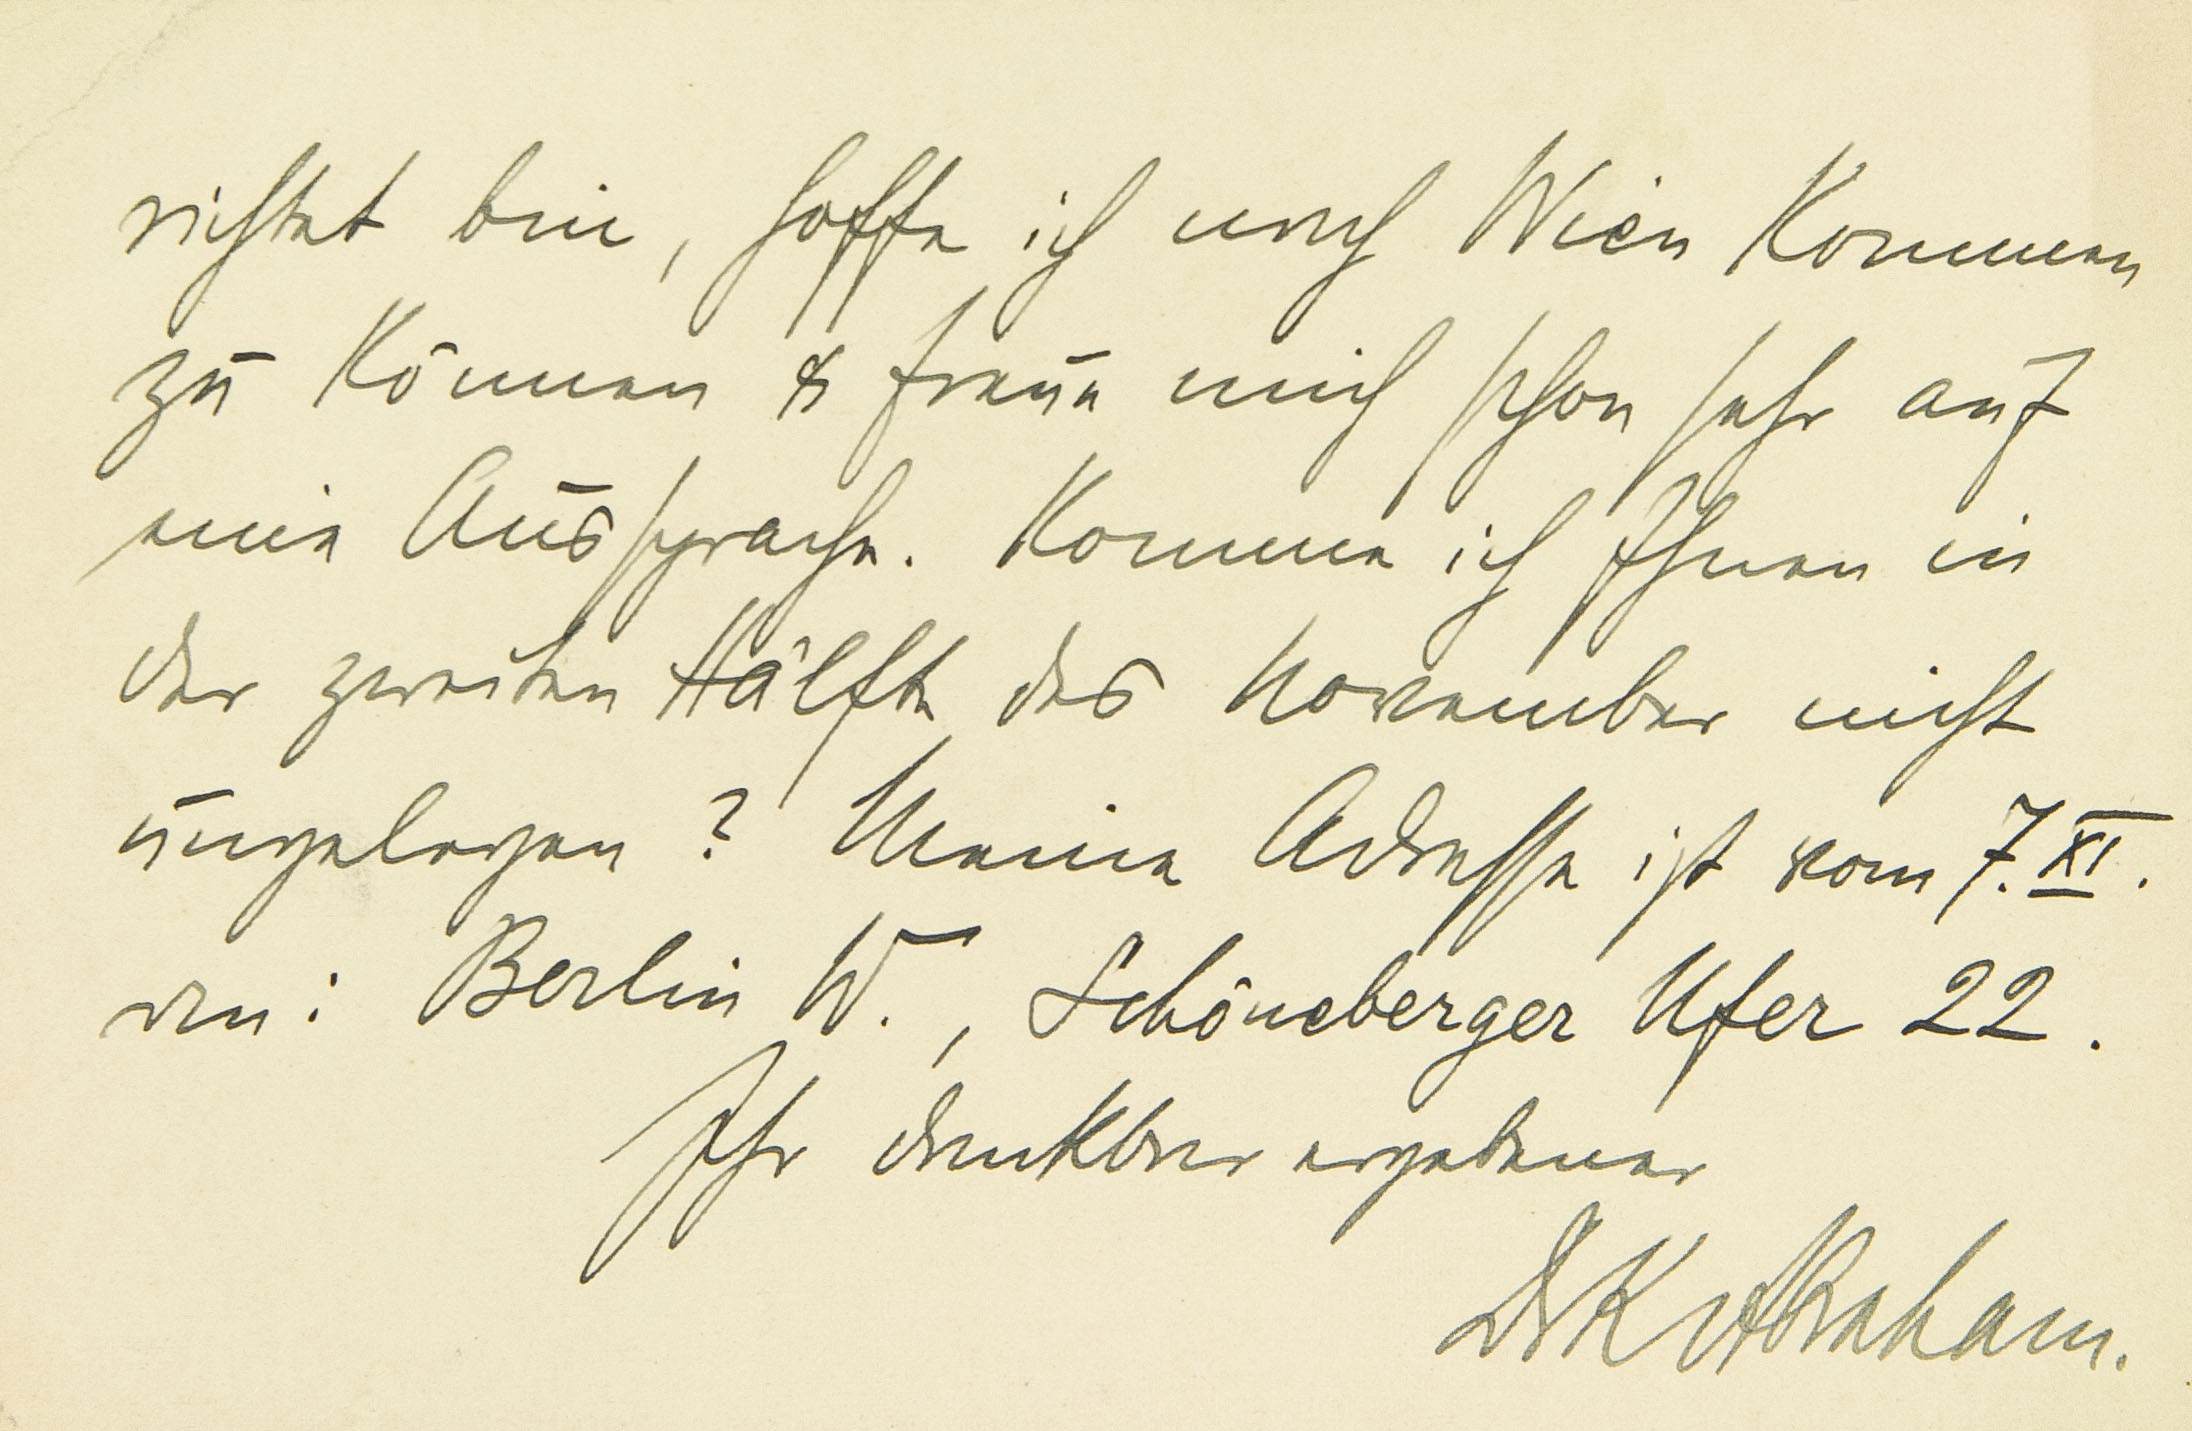 richtet bin, hoffe ich nach Wien kommen
zu können & freue mich schon sehr auf
eine Aussprache. Komme ich Ihnen in
der zweiten Hälfte des November nicht
ungelegen? Meine Adresse ist vom 7. XI.
an: Berlin W., Schöneberger Ufer 22.
Ihr dankbar ergebener
Dr K Abraham.